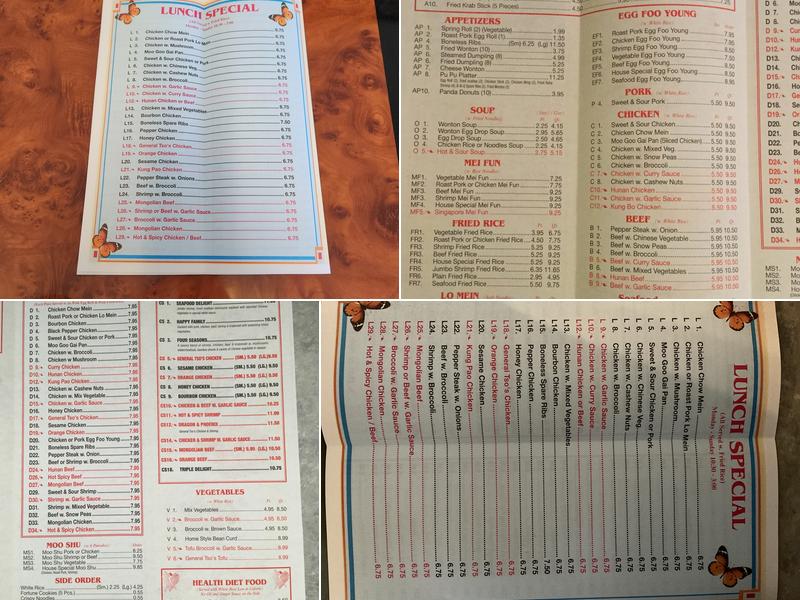 LUNCH SPECIAL
(All Served w. Fried Rice)
L 1. Chicken Chow Mein 6.75
L 2. Chicken or Roast Pork Lo Mein 6.75
L 3. Chicken w. Mushroom 6.75
L 4. Moo Goo Gai Pan 6.75
L 5. Sweet & Sour Chicken or Pork 6.75
L 6. Chicken w. Chinese Veg. 6.75
L 7. Chicken w. Cashew Nuts 6.75
L 8. Chicken w. Broccoli 6.75
L 9. Chicken w. Garlic Sauce 6.75
L10. Chicken w. Curry Sauce 6.75
L12. Hunan Chicken or Beef 6.75
L13. Chicken w. Mixed Vegetables 6.75
L14. Bourbon Chicken 6.75
L15. Boneless Spare Ribs 7.50
L16. Pepper Chicken 6.75
L17. Honey Chicken 6.75
L18. General Tso's Chicken 6.75
L19. Orange Chicken 6.75
L20. Sesame Chicken 6.75
L21. Kung Pao Chicken 6.75
L22. Pepper Steak w. Onions 6.75
L23. Beef w. Broccoli 6.75
L24. Shrimp w. Broccoli 6.75
L25. Mongolian Beef 6.75
L26. Shrimp or Beef w. Garlic Sauce 6.75
L27. Broccoli w. Garlic Sauce 6.75
L28. Mongolian Chicken 6.75
L29. Hot & Spicy Chicken / Beef 6.75
A10. Fried Crab Stick (5 Pieces)
APPETIZERS
AP 1. Spring Roll (2) (Vegetable) 1.99
AP 2. Roast Pork Egg Roll (1) 1.35
AP 4. Boneless Ribs (Sm) 6.25 (Lg) 11.50
AP 5. Fried Wonton (10) 3.75
AP 6. Steamed Dumpling (8) 4.99
AP 6. Fried Dumpling (8) 5.25
AP 7. Cheese Wonton 5.25
AP 8. Pu Pu Platter 11.25
AP10. Panda Donuts (10) 3.95
SOUP
(w. Fried Noodles)
O 1. Wonton Soup 2.25 4.15
O 2. Wonton Egg Drop Soup 2.95 5.65
O 3. Egg Drop Soup 2.50 4.65
O 4. Chicken Rice or Noodles Soup 2.25 4.15
O 5. Hot & Sour Soup 2.75 5.15
MEI FUN
(w. Rice Noodles)
MF1. Vegetable Mei Fun 7.25
MF2. Roast Pork or Chicken Mei Fun 9.25
MF3. Beef Mei Fun 9.25
MF3. Shrimp Mei Fun 9.25
MF4. House Special Mei Fun 9.25
MF5. Singapore Mei Fun 9.25
FRIED RICE
FR1. Vegetable Fried Rice 3.95 6.75
FR2. Roast Pork or Chicken Fried Rice 4.50 7.75
FR3. Shrimp Fried Rice 5.25 9.25
FR3. Beef Fried Rice 5.25 9.25
FR4. House Special Fried Rice 5.25 9.25
FR5. Jumbo Shrimp Fried Rice 6.35 11.65
FR6. Plain Fried Rice 2.95 4.95
FR7. Seafood Fried Rice 5.50 9.25
LO MEIN
EGG FOO YOUNG
(w. White Rice)
EF1. Roast Pork Egg Foo Young 7.95
EF2. Chicken Egg Foo Young 7.95
EF3. Shrimp Egg Foo Young
EF4. Vegetable Egg Foo Young
EF5. Beef Egg Foo Young
EF6. House Special Egg Foo Young
EF7. Seafood Egg Foo Young
PORK
(w. White Rice)
P 4. Sweet & Sour Pork 5.50 9.50
CHICKEN (w. White Rice)
C 1. Sweet & Sour Chicken 5.50 9.50
C 2. Chicken Chow Mein 5.50 9.50
C 3. Moo Goo Gai Pan (Sliced Chicken) 5.50 9.50
C 4. Chicken w. Mixed Veg. 5.50 9.50
C 5. Chicken w. Snow Peas 5.50 9.50
C 6. Chicken w. Broccoli 5.50 9.50
C 7. Chicken w. Curry Sauce 5.50 9.50
C 8. Chicken w. Cashew Nuts 5.50 9.50
C10. Hunan Chicken 5.50 9.50
C11. Chicken w. Garlic Sauce 5.50 9.50
C12. Kung Bo Chicken 5.50 9.50
BEEF
(w. White Rice)
B 1. Pepper Steak w. Onion 5.95 10.50
B 2. Beef w. Chinese Vegetable 5.95 10.50
B 3. Beef w. Snow Peas 5.95 10.50
B 4. Beef w. Broccoli 5.95 10.50
B 5. Beef w. Curry Sauce 5.95 10.50
B 6. Beef w. Mixed Vegetables 5.95 10.50
B 8. Hunan Beef 5.95 10.50
B 9. Beef w. Garlic Sauce 5.95 10.50
Seafood
D 1. Chicken Chow Mein 7.95
D 2. Roast Pork or Chicken Lo Mein 7.95
D 3. Bourbon Chicken 7.95
D 4. Black Pepper Chicken 7.95
D 5. Sweet & Sour Chicken or Pork 7.95
D 6. Moo Goo Gai Pan 7.95
D 7. Chicken w. Broccoli 7.95
D 8. Chicken w. Mushroom 7.95
D 9. Curry Chicken 7.95
D10. Hunan Chicken 7.95
D12. Kung Pao Chicken 7.95
D13. Chicken w. Cashew Nuts 7.95
D14. Chicken w. Mix Vegetable 7.95
D15. Chicken w. Garlic Sauce 7.95
D16. Honey Chicken 7.95
D17. General Tso's Chicken 7.95
D18. Sesame Chicken 7.95
D19. Orange Chicken 7.95
D20. Chicken or Pork Egg Foo Young 7.95
D21. Boneless Spare Ribs 7.95
D22. Pepper Steak w. Onion 7.95
D23. Beef or Shrimp w. Broccoli 7.95
D24. Hunan Beef 7.95
D26. Hot Spicy Beef 7.95
D27. Mongolian Beef 7.95
D29. Sweet & Sour Shrimp 7.95
D30. Shrimp w. Garlic Sauce 7.95
D31. Shrimp w. Mixed Vegetable 7.95
D32. Beef w. Snow Peas 7.95
D33. Mongolian Chicken 7.95
D34. Hot & Spicy Chicken 7.95
MOO SHU (w. 4 Pancakes)
MS1. Moo Shu Pork or Chicken 8.25
MS2. Moo Shu Shrimp or Beef 8.50
MS4. House Special Moo Shu 9.85
SIDE ORDER
White Rice (Sm.) 2.25 (Lg) 4.25
Fortune Cookies (5 Pcs.) 0.55
Crispy Noodles
CS 1. SEAFOOD DELIGHT
CS 2. HAPPY FAMILY 10.75
CS 3. FOUR SEASONS 10.75
CS 5. GENERAL TSO'S CHICKEN (SM.) 5.50 (LG.) 9.50
CS 6. SESAME CHICKEN (SM.) 5.50 (LG.) 9.50
CS 7. ORANGE CHICKEN (SM.) 5.50 (LG.) 9.50
CS 8. HONEY CHICKEN (SM.) 5.50 (LG.) 9.50
CS 9. BOURBON CHICKEN (SM.) 5.50 (LG.) 9.50
CS10. CHICKEN & BEEF W. GARLIC SAUCE 10.25
CS11. HOT & SPICY SHRIMP 11.00
CS12. DRAGON & PHOENIX 11.50
General Tso's Chicken & Shrimp
CS14. CHICKEN & SHRIMP W. GARLIC SAUCE 11.50
CS15. MONGOLIAN BEEF (SM.) 5.95 (LG.) 10.50
CS16. ORANGE BEEF 10.50
CS18. TRIPLE DELIGHT 10.75
VEGETABLES
(w. White Rice)
V 1. Mix Vegetables 4.95 8.50
V 2. Broccoli w. Garlic Sauce 4.95 8.50
V 3. Broccoli w. Brown Sauce 4.95 8.50
V 4. Home Style Bean Curd 8.99
V 5. Tofu Broccoli w. Garlic Sauce 8.99
V 6. General Tso's Tofu 8.99
HEALTH DIET FOOD
LUNCH SPECIAL
(All Served w. Fried Rice)
Monday - Sunday 10:30 - 3:00
L 1. Chicken Chow Mein 6.75
L 2. Chicken or Roast Pork Lo Mein 6.75
L 3. Chicken w. Mushroom 6.75
L 4. Moo Goo Gai Pan 6.75
L 5. Sweet & Sour Chicken or Pork 6.75
L 6. Chicken w. Chinese Veg. 6.75
L 7. Chicken w. Cashew Nuts 6.75
L 8. Chicken w. Broccoli 6.75
L 9. Chicken w. Garlic Sauce 6.75
L10. Chicken w. Curry Sauce 6.75
L12. Hunan Chicken or Beef 6.75
L13. Chicken w. Mixed Vegetables 6.75
L14. Bourbon Chicken 6.75
L15. Boneless Spare Ribs 7.50
L16. Pepper Chicken 6.75
L17. Honey Chicken 6.75
L18. General Tso's Chicken 6.75
L19. Orange Chicken 6.75
L20. Sesame Chicken 6.75
L21. Kung Pao Chicken 6.75
L22. Pepper Steak w. Onions 6.75
L23. Beef w. Broccoli 6.75
L24. Shrimp w. Broccoli 6.75
L25. Mongolian Beef 6.75
L26. Shrimp or Beef w. Garlic Sauce 6.75
L27. Broccoli w. Garlic Sauce 6.75
L28. Mongolian Chicken 6.75
L29. Hot & Spicy Chicken / Beef 6.75